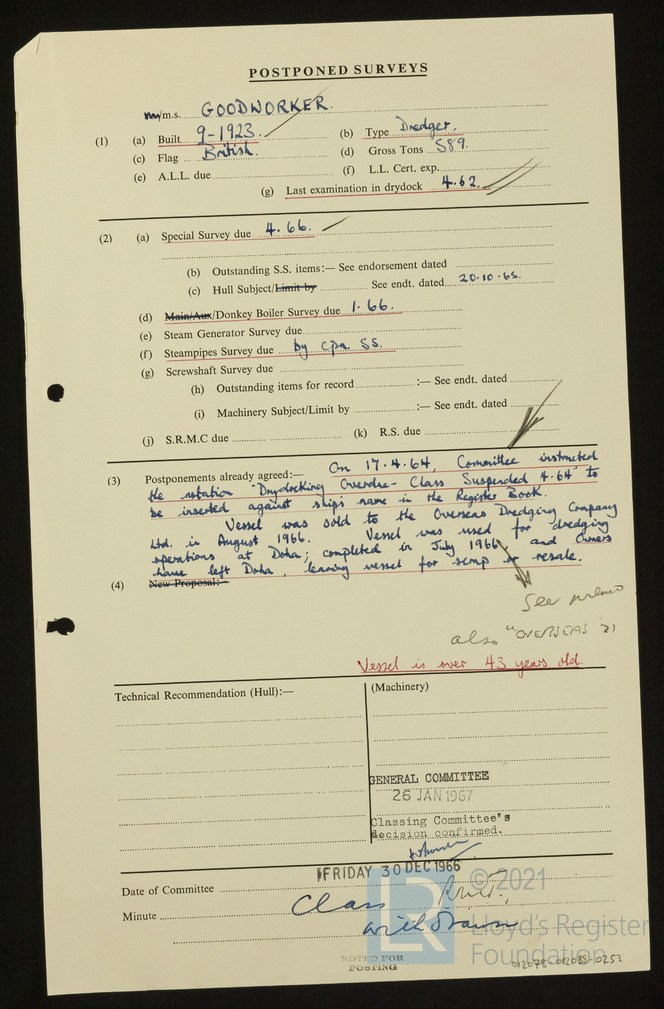 POSTPONED SURVEYS
/m.s. GOODWORKER.
(1) (a) Built 9-1923. (b) Type Dredger.
(c) Flag British. (d) Gross Tons 589.
(e) A.L.L. due (f) L.L. Cert. exp.
(g) Last examination in drydock 4.62.
(2) (a) Special Survey due 4.66.
(b) Outstanding S.S. items:— See endorsement dated
(c) Hull Subject/Limit by See endt. dated 20.10.65.
(d) Main/Aux/Donkey Boiler Survey due 1.66.
(e) Steam Generator Survey due
(f) Steampipes Survey due by cpn SS.
(g) Screwshaft Survey due
(h) Outstanding items for record :— See endt. dated
(i) Machinery Subject/Limit by :— See endt. dated
(j) S.R.M.C due (k) R.S. due
(3) Postponements already agreed:— On 17.4.64, Committee instructed
the notation "Drydocking Overdue - Class Suspended 4.64" to
be inserted against ship's name in the Register Book.
Vessel was sold to the Overseas Dredging Company
Ltd. in August 1966. Vessel was used for dredging
operations at Doha; completed in July 1966 and Owners
have left Doha, leaving vessel for scrap or resale.
(4) New Proposal:—
See
also "OVERSEAS 21
Vessel is over 43 years old.
Technical Recommendation (Hull):— (Machinery)
GENERAL COMMITTEE
26 JAN 1967
Classing Committee's
decision confirmed.
Date of Committee FRIDAY 30 DEC 1966
Minute Class
withdrawn
© 2021
Lloyd's Register
Foundation
NOTED FOR
POSTING
012078-012088-0253